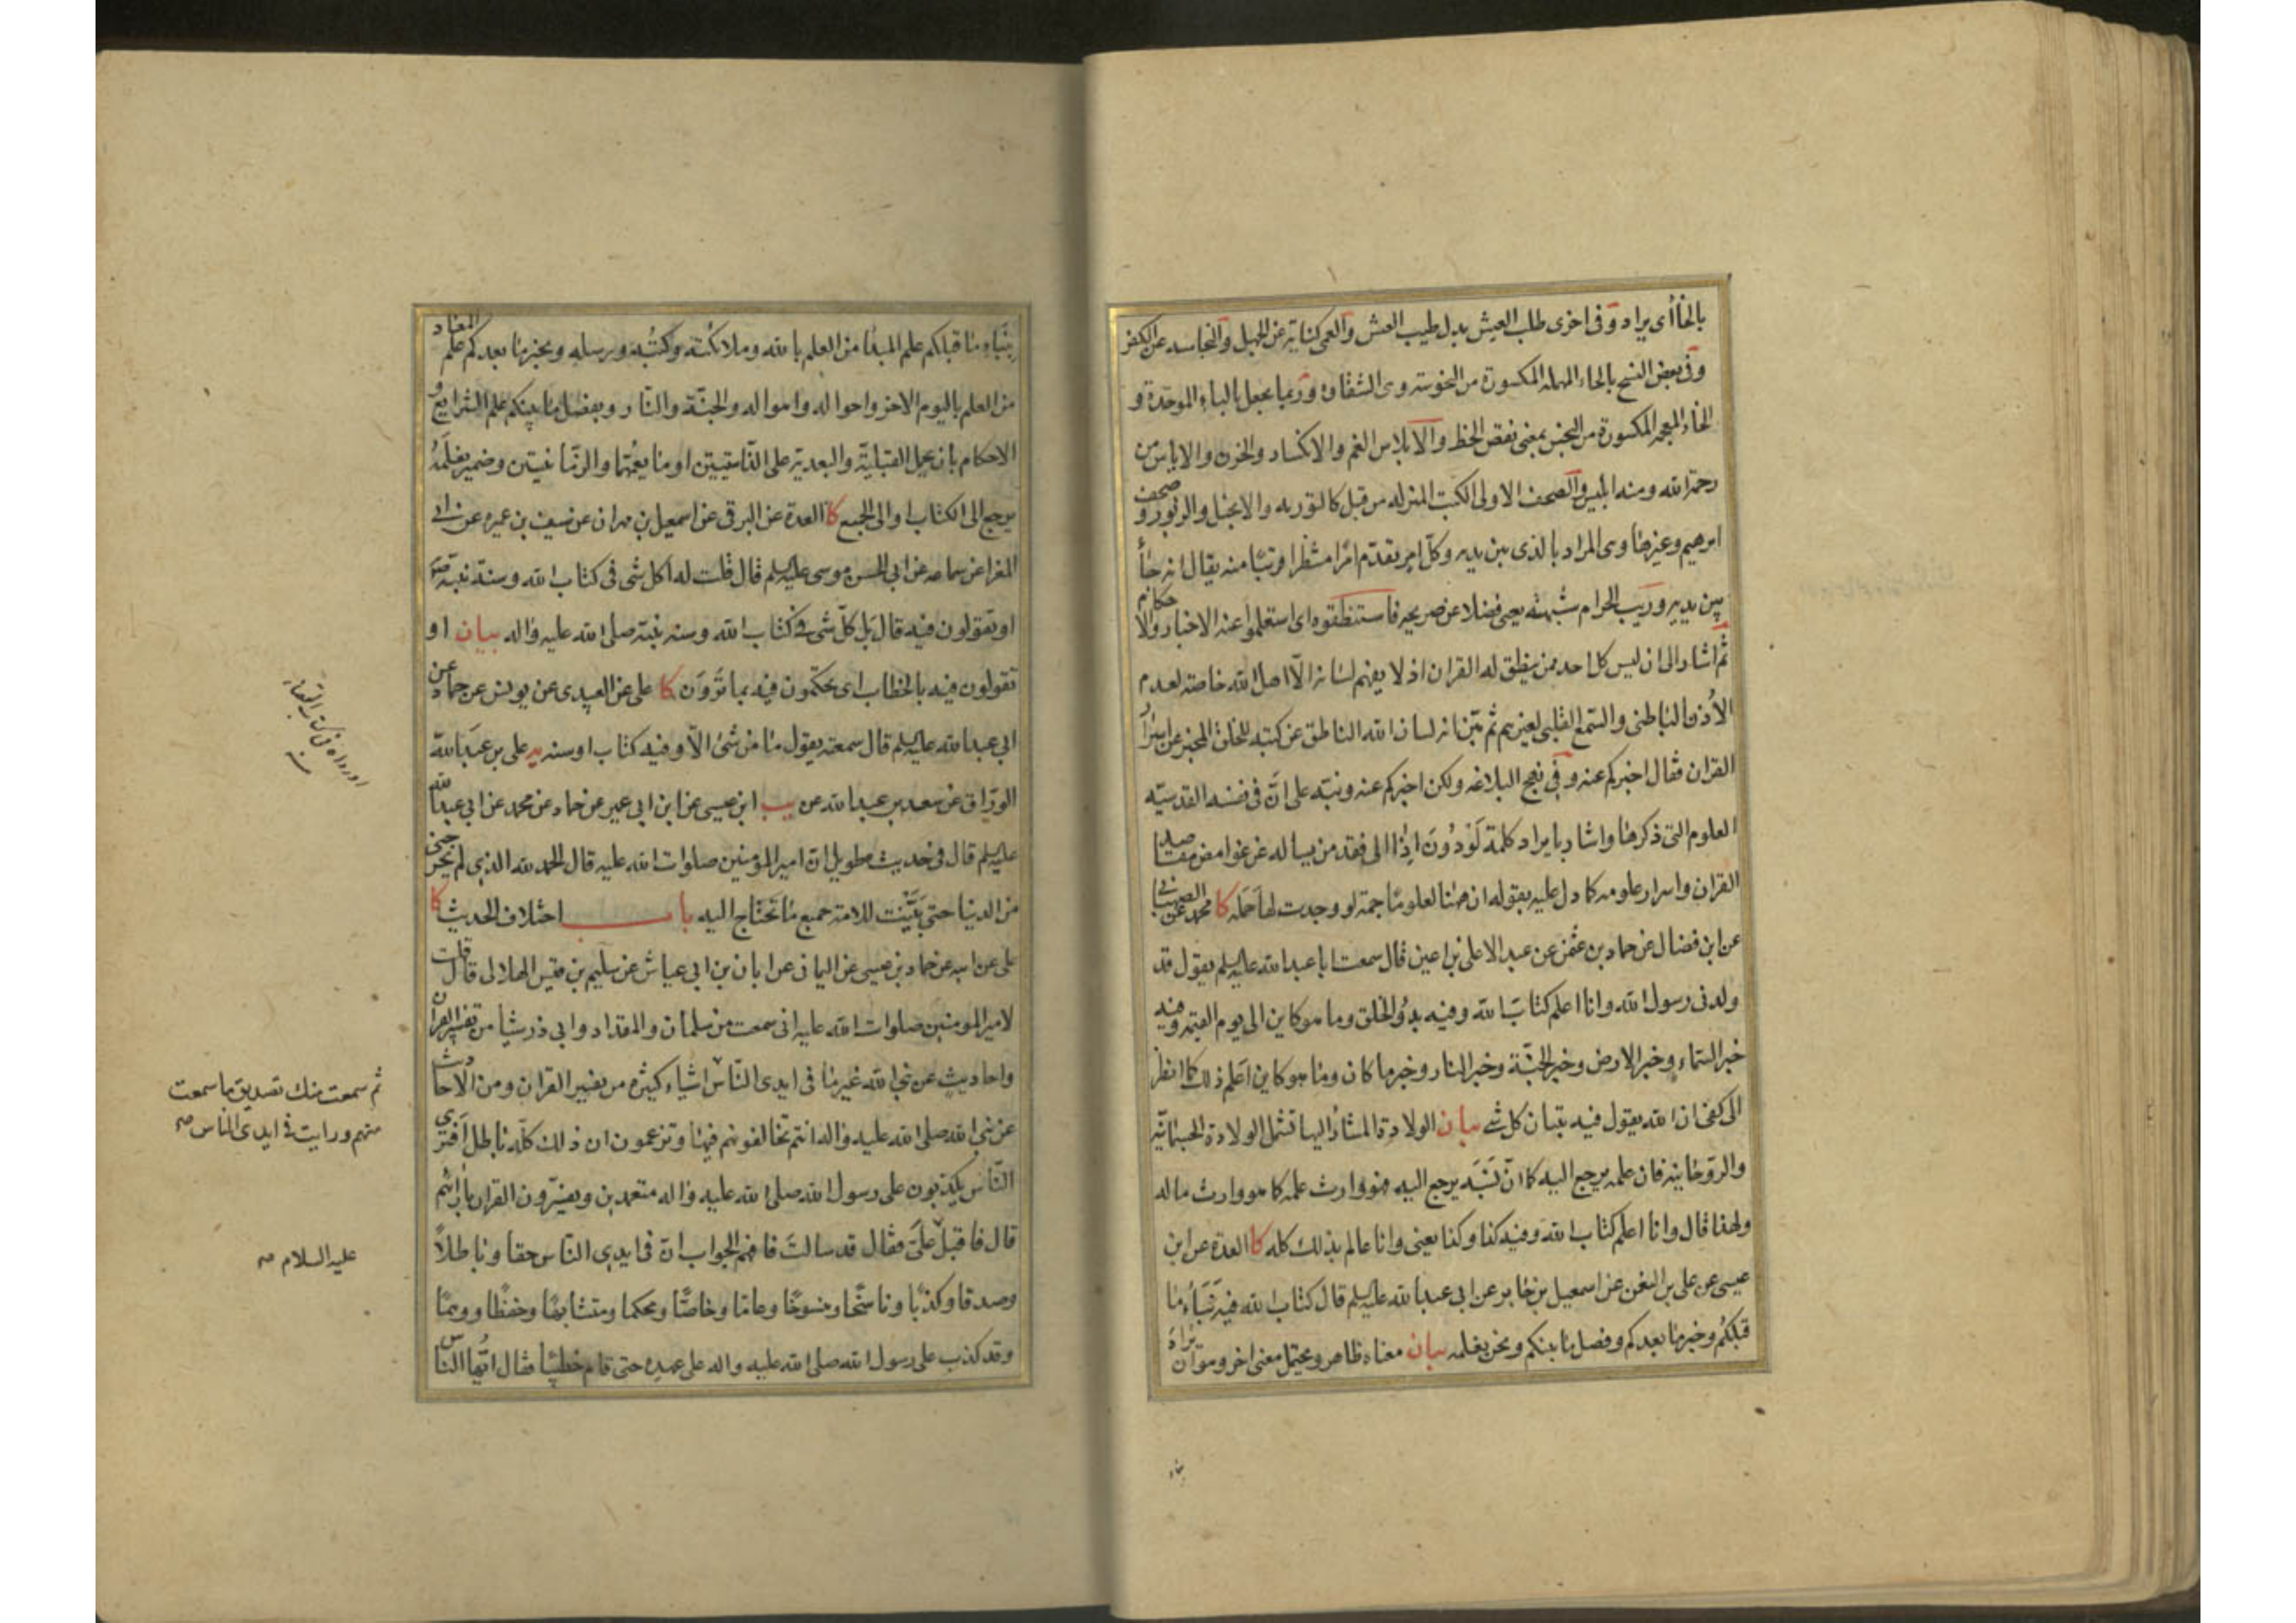 بالخاأى يراد وفى اخرى طلب العيش بدل طيب العش والعمى كناية عن الجهل والنجاسه عن الكفر
وفى بعض النسخ بالحاء المهمله المكسورة من النحوسة وى الشقاوه وربما يجعل بالباء الموحدة و
الخاء المعجمه المكسورة من البخس بمعنى نقص الحظ والابلاس الغم والانكساد والحزن والاياس من
رحمة الله ومنه ابليس والصحف الاولى الكتب المنزله من قبل كالتوريه والانجيل والزبور وصحف
ابرهيم وغيرها وى المراد بالذى بين يديه وكل امر يقدّم امرًا منتظرا قريبًا منه يقال انه جاأ
بين يديه وريب الحرام شبهته يعى فضلا عن صريحه فاستنطقوه اى استعلموا عنه الاخبار والاحكام
ثم اشار الى ان ليس كل احد ممن ينطق له القران اذ لا يفهم لسانه الّا اهل الله خاصة لعدم
الأذن الباطنى والسّمع القلبى لغيرهم ثم بيّن انه لسان الله الناطق عن كتبه للخلق المخبر عن اسرار
القران فقال اخبركم عنه وفى نهج البلاغه ولكن اخبركم عنه ونبّه على انّ فى نفسه القدسيّه
العلوم التى ذكرها واشار بايراد كلمة لَو دُونَ اِذا الى فقد من يساله عن غوامض مقاصد
القران واسرار علومه كما دل عليه بقوله ان هٰهنا لعلومًا جمّة لو وجدت لها حَمَله كا محمد عن الصهبانى
عن ابن فضال عن حماد بن عثمن عن عبد الاعلى بن اعين قال سمعت ابا عبد الله عليه السلم يقول قد
ولدنى رسول الله وانا اعلم كتابَ الله وفيه بدؤ الخلق وما هو كاين الى يوم القيمه وفيه
خبر السّماء وخبر الارض وخبر الجنّة وخبر النار وخبر ما كان وما هو كاين اَعلم ذلك كما انظر
الى كفى ان الله يقول فيه تبيان كل شے بيان الولادة المشار اليها تشمل الولادة الجسمانيّه
والرّوحانيه فان علمه يرجع اليه كما انّ نَسَبَه يرجع اليه فهو وارث علمه كما هو وارث ماله
ولهذا قال وانا اعلم كتاب الله وفيه كذا وكذا يعنى وانا عالم بذلك كله كا العدة عن ابن
عيسى عن على بن النعمن عن اسمعيل بن جابر عن ابى عبد الله عليه السلم قال كتاب الله فيه نَبَأُ ما
قبلكُم وخبر ما بعدكم وفصل ما بينكم ونحن نعلمه بيان معناه ظاهر ويحتمل معنى اخر وهو ان يراد
بنَبَاءِ ما قبلكم علم المبدأ من العلم بالله وملائكته وكتُبه ورسله وبخبر ما بعدكم علم المعاد
من العلم باليوم الاخر واحواله واهواله والجنّة والنّار وبفصل ما بينكم علم الشرايع و
الاحكام بان يحمل القبليّة والبعدية على الذّاتيتين او ما يعمّها والزّمانيتين وضمير نعلَمُه
يرجع الى الكتاب او الى الجميع كا العدة عن البرقى عن اسمعيل بن مهران عن سيف بن عميره عن ابى
المغرا عن سماعه عن ابى الحسن موسى عليه السلم قال قلت له اكل شى فى كتاب الله وسنة نبيه ص
او تقولون فيه قال بَل كلّ شى فى كتاب الله وسنه نبيّه صلى الله عليه واله بيان او
تقولون فيه بالخطاب اى تحكمون فيه بما تَروَن كا على عن العبيدى عن يونس عن حماد عن
ابى عبد الله عليه السلم قال سمعته يقول ما من شئ الّا وفيه كتاب او سنه يد على بن عبد الله
الورّاق عن سعد بن عبد الله عن يب ابن عيسى عن ابن ابى عمير عن حماد عن محمد عن ابى عبد الله
عليه السلم قال فى حديث طويل ان امير المؤمنين صلوات الله عليه قال الحمد لله الذى لم يخرجنى
من الدنيا حتى بَيَّنْت للامة جميع ما تحتاج اليه باب اختلاف الحديث كا
على عن ابيه عن حماد بن عيسى عن اليمانى عن ابان بن ابى عياش عن سليم بن قيس الهلالى قال قلت
لامير المومنين صلوات الله عليه انى سمعت من سلمان والمقداد وابى ذر شيئا من تفسير القران
واحاديث عن نبى الله غير ما فى ايدى النّاس اشياء كثيرة من تفسير القران ومن الاحاديث
عن نبى الله صلى الله عليه واله انتم تخالفونهم فيها وتزعمون ان ذلك كلّه باطل اَفترى
النّاس يكذبون على رسول الله صلى الله عليه واله متعمدين ويفسّرون القران بارائهم
قال فاقبل علىّ فقال قد سالتَ فافهم الجواب انّ فى ايدى النّاس حقا وباطلًا
وصدقا وكذبًا وناسخًا ومنسوخًا وعاما وخاصًّا ومحكما ومتشابهًا وحفظًا ووهمًا
وقد كذب على رسول الله صلى الله عليه واله على عهده حتى قام خطيبًا فقال ايّها النّاس
ثم سمعت منك تصديق ما سمعت
منهم ورايت فى ايدى الناس صح
عليه السلام صح